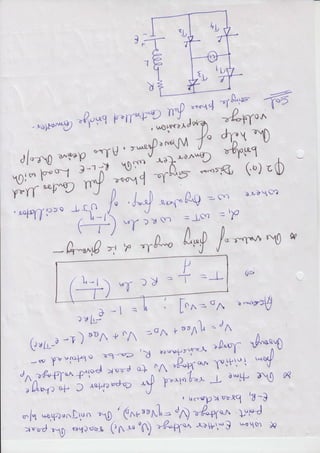 * when Emitter voltage (Ve or Vi) reaches the peak
point voltage (Vp = ηVBB + VD), the unijunction b/w
E-B1 breakdown.
* The time T required for capacitor C to charge
from initial voltage Vv to peak point voltage Vp
through large resistance R, can be obtained as -
Vp = ηVBB + VD = Vv + VBB (1 - e^-T/RC)
Assume VD = Vv] : η = 1 - e^-T/RC
⇒ T = 1/f = RC ln (1/(1-η))
* The value of firing angle α is given by -
α = ωT = ωRC ln (1/(1-η))
where ω = Angular freq. of UJT oscillator.
Q2 (a) Discuss Single phase full Controlled
bridge Converter with R-L-E Load with
the help of Waveforms. Also derive the o/p
voltage expression.
Sol Single phase full Controlled bridge Converter.
T1
T2
T3
T4
R
L
E